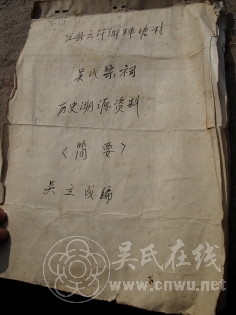 吴氏宗祠
历史渊源资料
〈简要〉
吴立成编
吴氏在线
www.cnwu.net